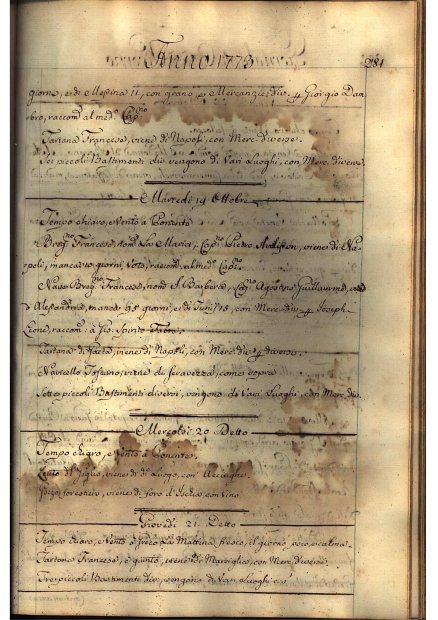 Anno 1773
281
giorni, e di Messina 11, con grano, e Mercanzie div. a Giorgio Dam-
bro, raccom. al med. Cap.no
Tartana Francese, viene di Napoli, con Merc. diverse
Sei piccoli Bastimenti div. vengono di Vari Luoghi, con Merc. diverse
Martedì 19 Ottobre
Tempo chiaro, e Vento a Ponente
Brig.no Francese, nom. La Maria, Cap.no Pietro viene di Na-
poli, manca 10 giorni, Voto, raccom. al med. Cap.no
Nave Brig.no Francese, nom. S. Barbera, Cap.no Agostino Guillaume, viene
d'Alessandria, manca giorni, e di Tunis 18, con Merc. div. a Joseph
Lione, raccom. a Gio. Spirito Fabre
Tartana di Gaeta, viene di Napoli, con Merc. div. a diversi
Navicello Toscano, viene da Seravezza, come sopra
Sette piccoli Bastimenti diversi, vengono di Vari Luoghi, con Merc. div.
Mercoldì 20 Detto
Tempo chiaro, e Vento a Ponente
Leuto del Giglio, viene di d.o Luogo, con Acciughe
forestiero, viene di foro d'Ischia con Vino
Giovedì 21. Detto
Tempo chiaro, e Vento a Greco la Mattina fresco, il giorno poco, e calma
Tartana Francese, è giunto, viene di Marsiglia, con Merc. diverse
Tre piccoli Bastimenti div. vengono di Vari Luoghi